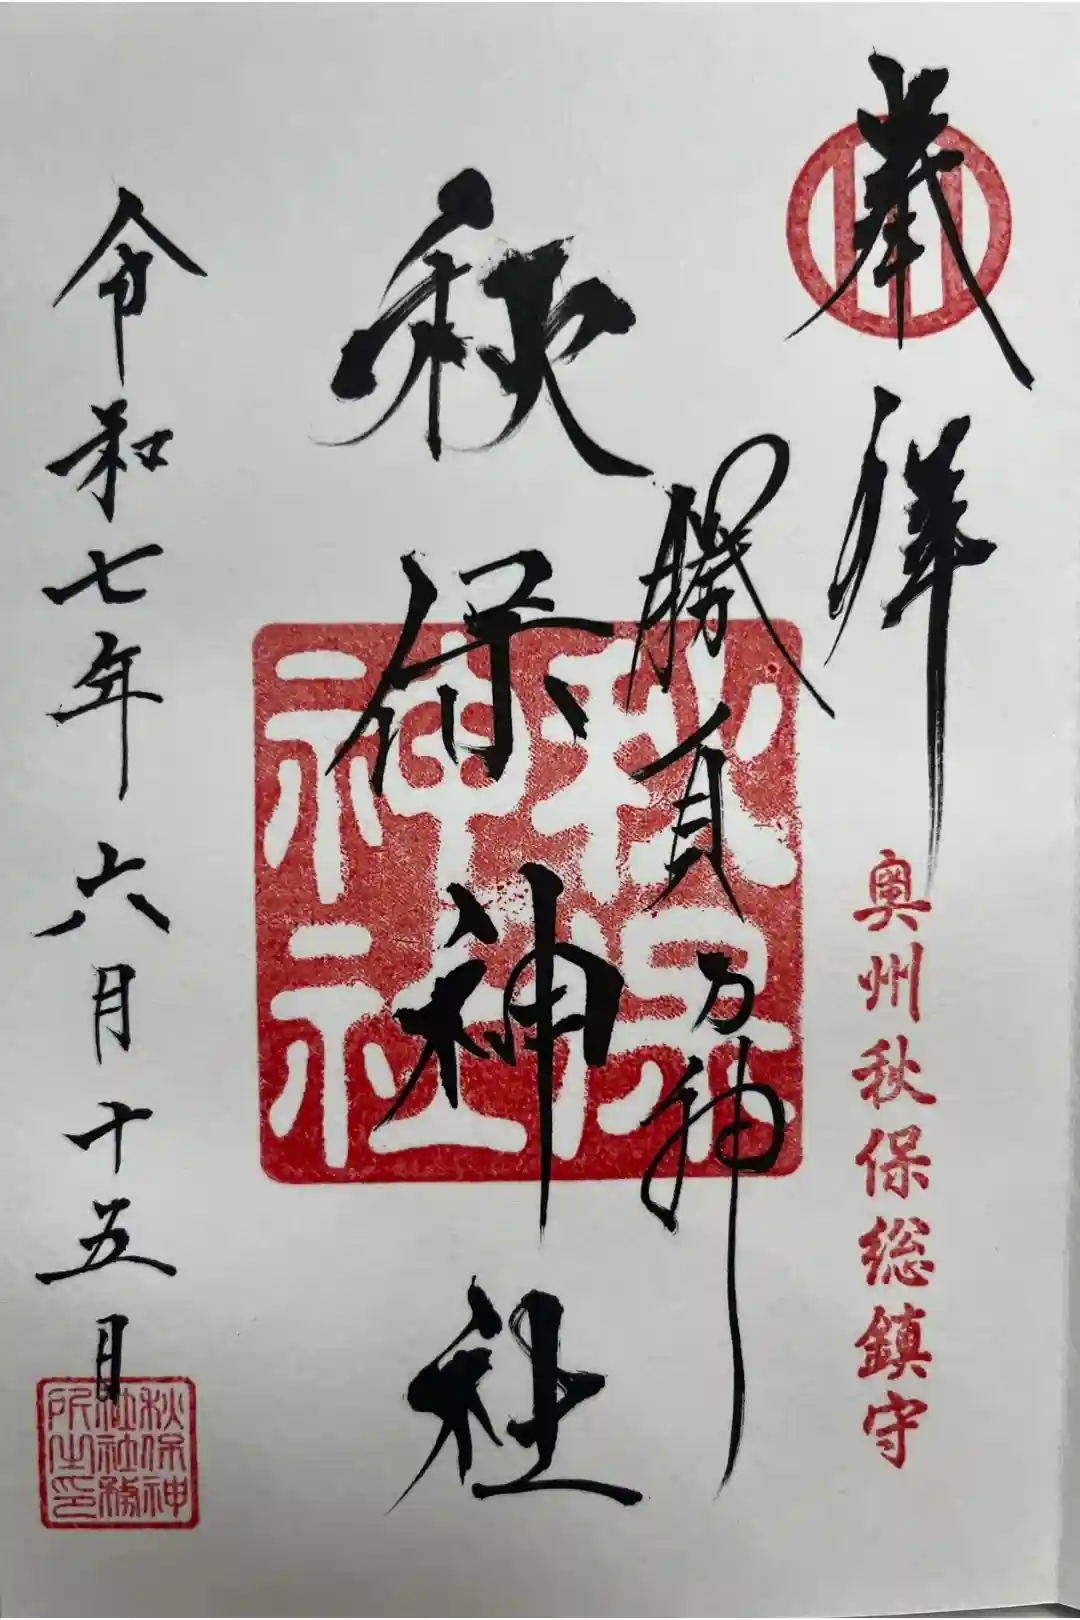 奉拝
奥州秋保総鎮守
勝負乃神
秋保神社
秋保
神社
令和七年六月十五日
秋保神
社社務
所之印